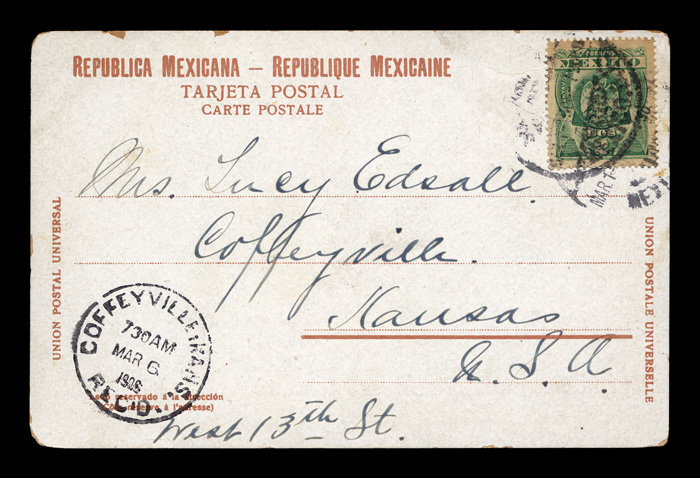 REPUBLICA MEXICANA – REPUBLIQUE MEXICAINE
TARJETA POSTAL
CARTE POSTALE
MEXICO
MAR
Mrs. Lucy Edsall
Coffeyville.
Kansas
U.S.A
West 13th St.
UNION POSTAL UNIVERSAL
UNION POSTALE UNIVERSELLE
COFFEYVILLE, KANS.
730AM
MAR 6
1906
REC'D.
Lado reservado á la dirección
(Côté réservé à l'adresse)